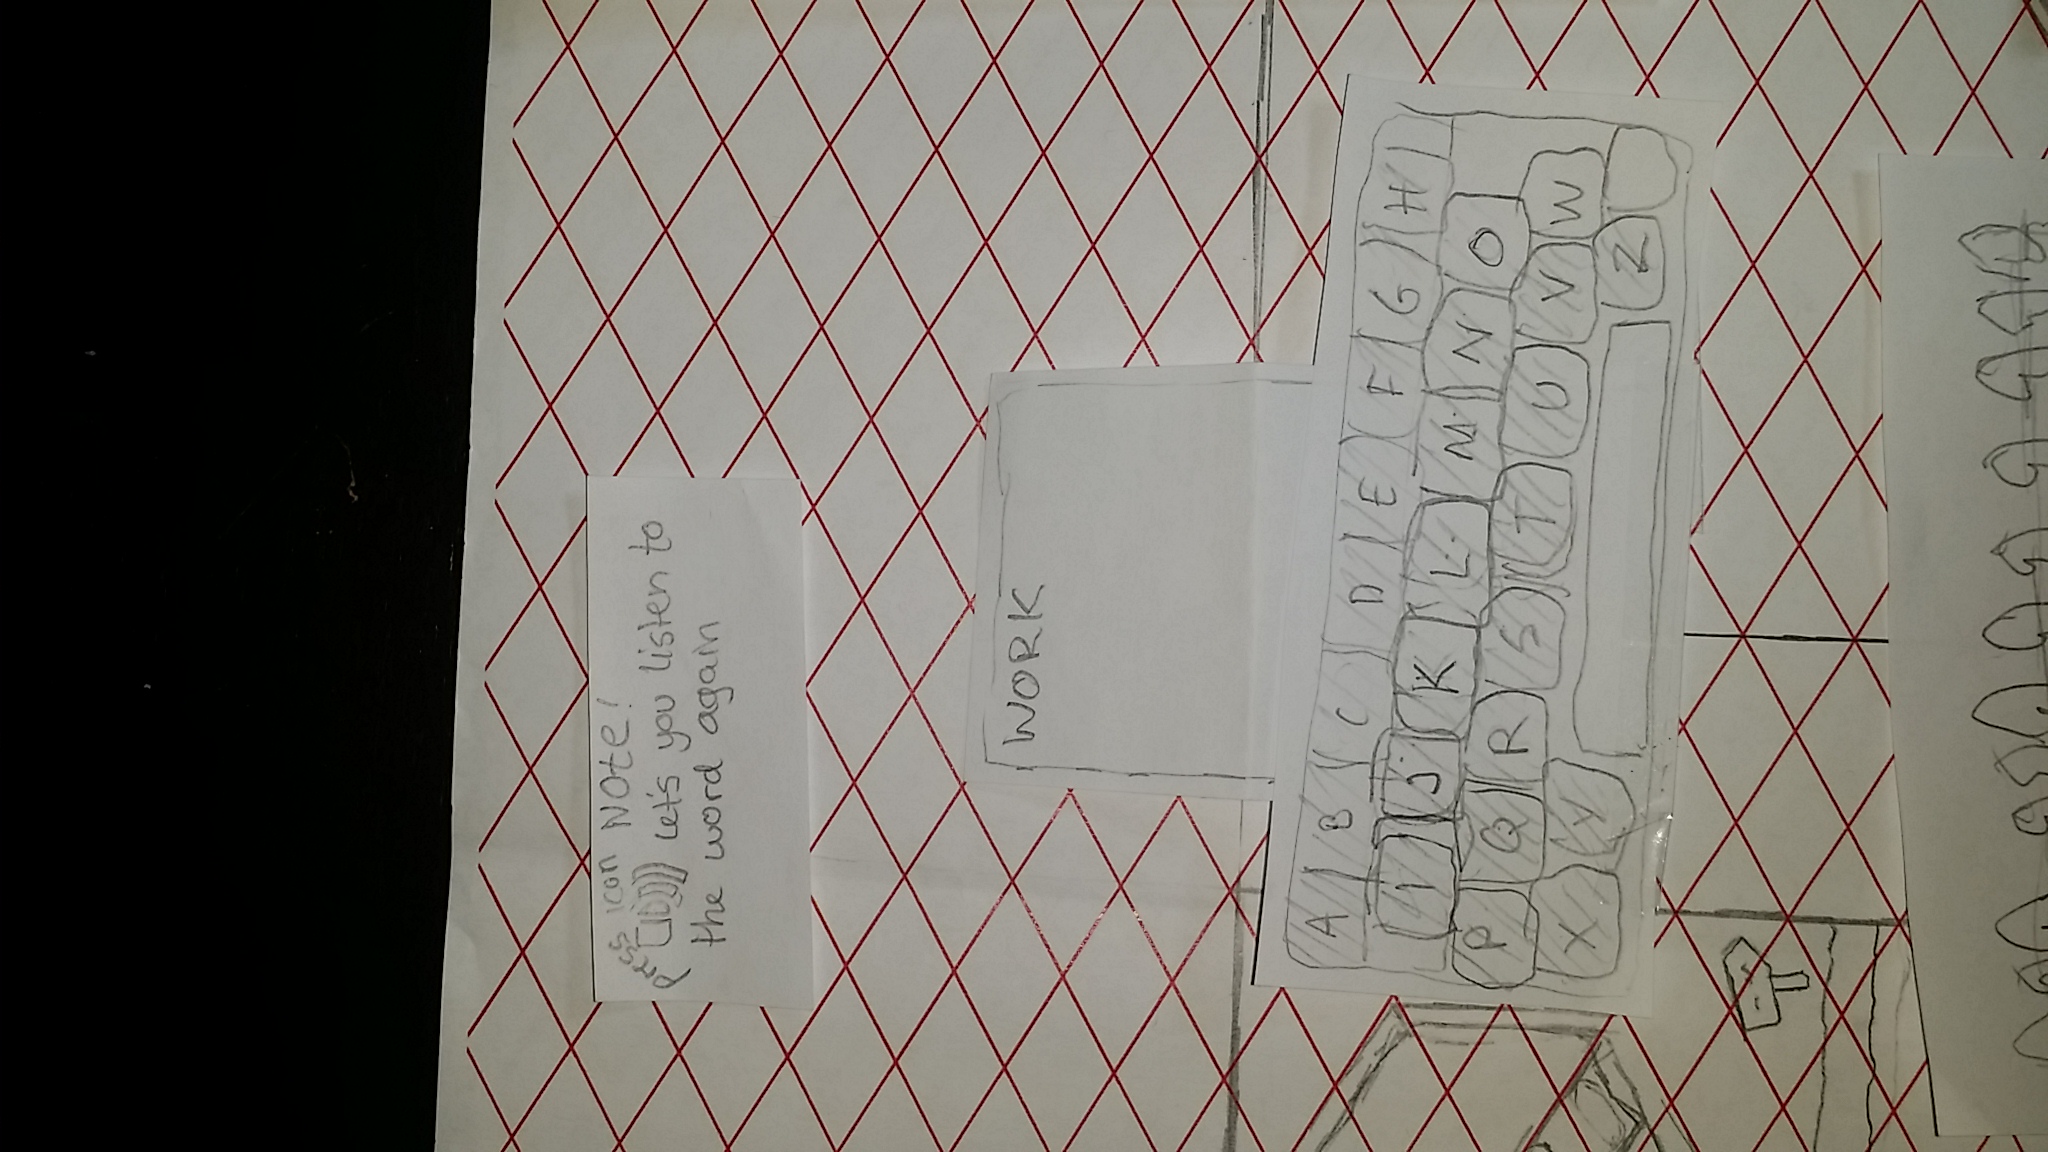 NOTE!
press icon let's you listen to
the word again
WORK
A B C D E F G H
I J K L M N O
P Q R S T U V W
X Y Z